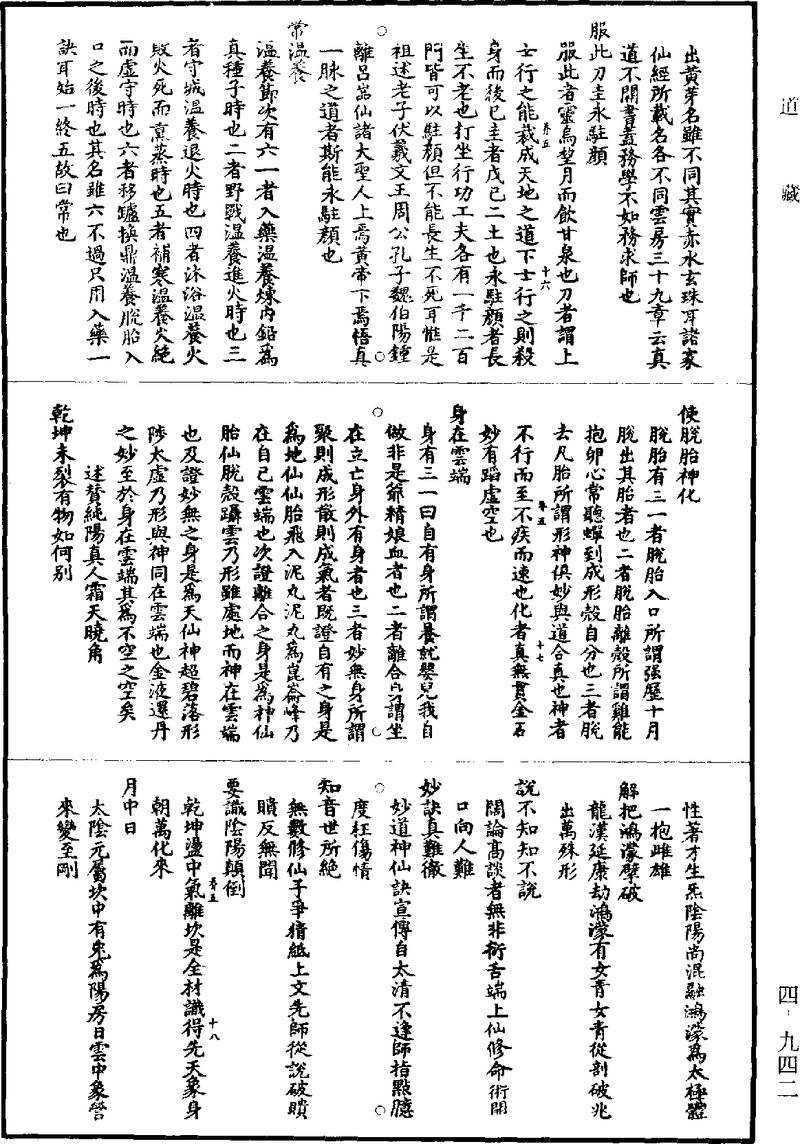 道藏
出黃芽名雖不同其實赤水玄珠耳諸家
仙經所載名各不同雲房三十九章云真
道不開書蓋務學不如務求師也
服此刀圭永駐顏
服此者靈烏望月而飲甘泉也刀者謂上
士行之能裁成天地之道下士行之則殺
身而後已圭者戊己二土也永駐顏者長
生不老也打坐行功工夫各有一千二百
門皆可以駐顏但不能長生不死耳惟是
祖述老子伏羲文王周公孔子魏伯陽鍾
離呂嵓仙諸大聖人上焉黃帝下焉悟真
一脉之道者斯能永駐顏也
常溫養
溫養節次有六一者入藥溫養煉內鉛為
真種子時也二者野戰溫養進火時也三
者守城溫養退火時也四者沐浴溫養火
敗火死而熏蒸時也五者補寒溫養火絕
而虛守時也六者移鑪換鼎溫養脫胎入
口之後時也其名雖六不過只用入藥一
訣耳始一終五故曰常也
卷五
十六
使脫胎神化
脫胎有三一者脫胎入口所謂弦歷十月
脫出其胎者也二者脫胎離殼所謂雞能
抱卵心常聽蟬到成形殼自分也三者脫
去凡胎所謂形神俱妙與道合真也神者
不行而至不疾而速也化者真無貫金石
妙有蹈虛空也
身在雲端
身有三一曰自有身所謂養就嬰兒我自
做非是爺精娘血者也二者離合身謂坐
在立亡身外有身者也三者妙無身所謂
聚則成形散則成氣者既證自有之身是
為地仙仙胎飛入泥丸泥丸為崑崙峰乃
在自己雲端也次證離合之身是為神仙
胎仙脫殼躡雲乃形雖處地而神在雲端
也及證妙無之身是為天仙神超碧落形
陟太虛乃形與神同在雲端也金液還丹
之妙至於身在雲端其為不空之空矣
述贊純陽真人霜天曉角
乾坤未裂有物如何別
卷五
十七
性著才生炁陰陽尚混融鴻濛為太極體
一抱雌雄
解把鴻濛擘破
龍漢延康劫鴻濛有女青女青從剖破兆
出萬殊形
說不知知不說
闊論高談者無非衒舌端上仙修命術開
口向人難
妙訣真難徹
妙道神仙訣宣傳自太清不逢師指點臆
度枉傷情
知音世所絕
無數修仙子爭猜紙上文先師從說破聵
聵反無聞
要識陰陽顛倒
乾坤盪中氣離坎是全材識得先天象身
朝萬化來
月中日
太陰元屬坎中有兔為陽房日雲中象營
來變至剛
卷五
十八
四·九四二